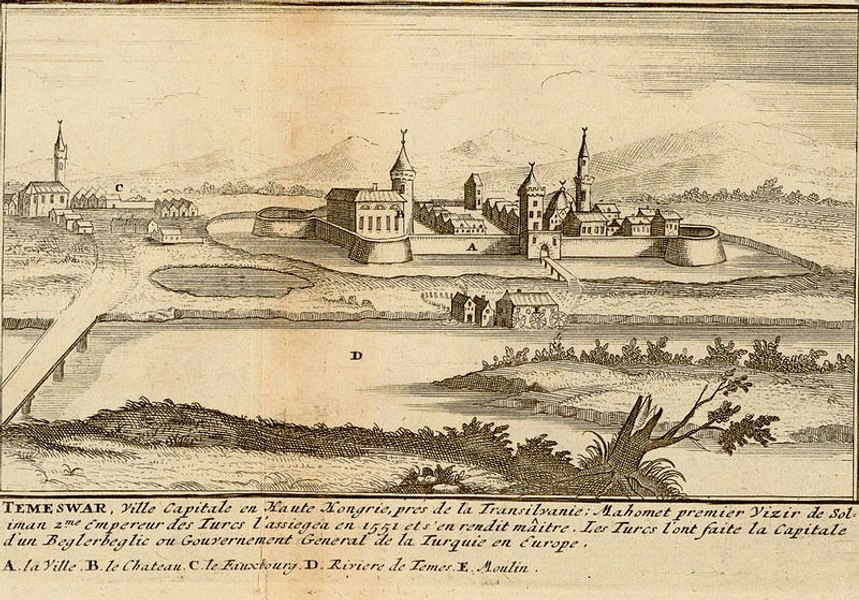 C
B
A
D
TEMESWAR, Ville Capitale en Haute Hongrie, prés de la Transilvanie: Mahomet premier Vizir de Sol-
iman 2.me Empereur des Turcs l'assiegea en 1551 et s'en rendit màitre. Les Turcs l'ont faite la Capitale
d'un Beglerbeglic ou Gouvernement General de la Turquie en Europe.
A. la Ville. B. le Chateau. C. le Fauxbourg. D. Riviere de Temes. E. Moulin.